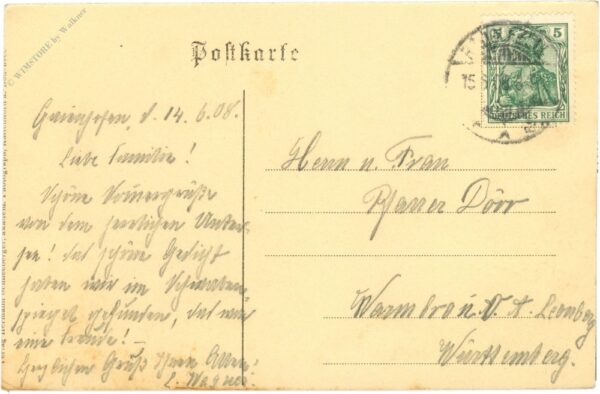 © WIMSTORE by Walkner
Postkarte
5
DEUTSCHES REICH
Gaienhofen, d. 14.6.08.
Liebe Familie!
Schöne Sommergrüße
von dem herrlichen Unter-
see! Das schöne Gedicht
haben wir im Schwaben-
spiegel gefunden, das war
eine Freude! –
Herzlichen Gruß Ihnen Allen!
L. Wagner.
Herrn u. Frau
Pfarrer Dörr
Warmbronn O. A. Leonberg
Württemberg.